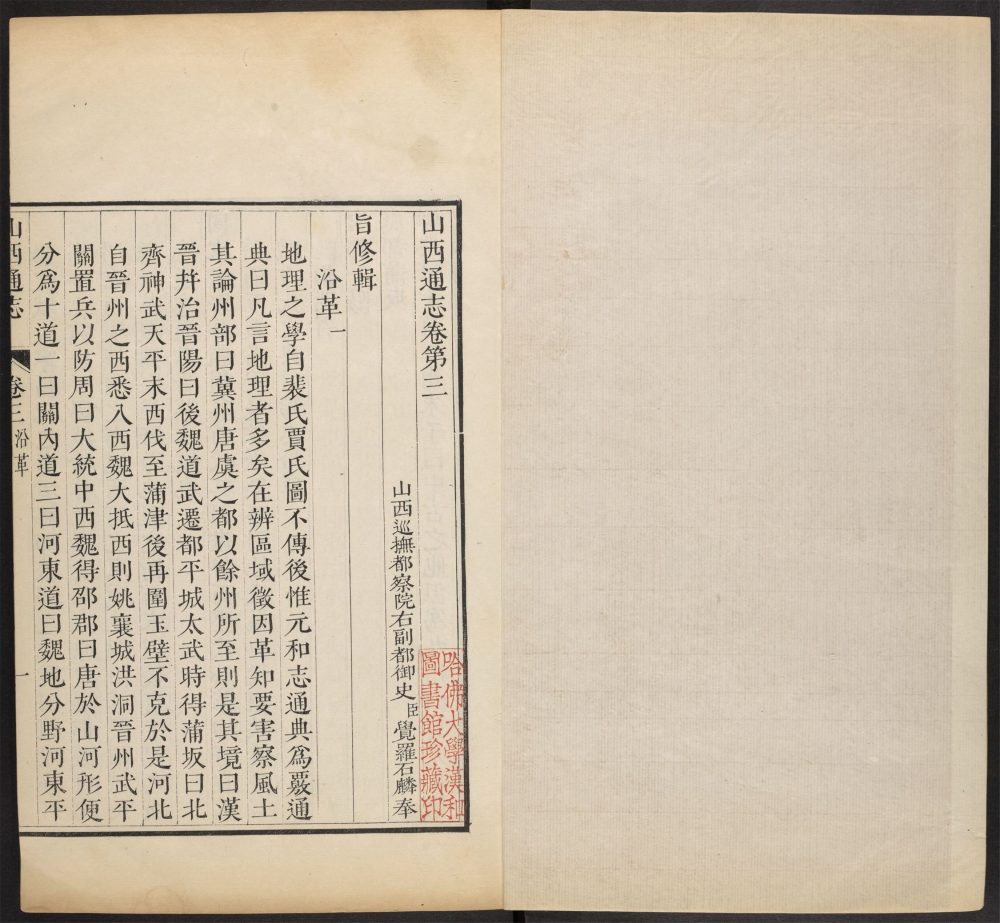 山西通志卷第三
山西巡撫都察院右副都御史臣覺羅石麟奉
旨修輯
沿革一
地理之學自裴氏賈氏圖不傳後惟元和志通典爲覈通
典曰凡言地理者多矣在辨區域徵因革知要害察風土
其論州部曰冀州唐虞之都以餘州所至則是其境曰漢
晉幷治晉陽曰後魏道武遷都平城太武時得蒲坂曰北
齊神武天平末西伐至蒲津後再圍玉壁不克於是河北
自晉州之西悉入西魏大抵西則姚襄城洪洞晉州武平
關置兵以防周曰大統中西魏得邵郡曰唐於山河形便
分爲十道一曰關內道三曰河東道曰魏地分野河東平
山西通志
卷三 沿革
一
哈佛大學漢和
圖書館珍藏印